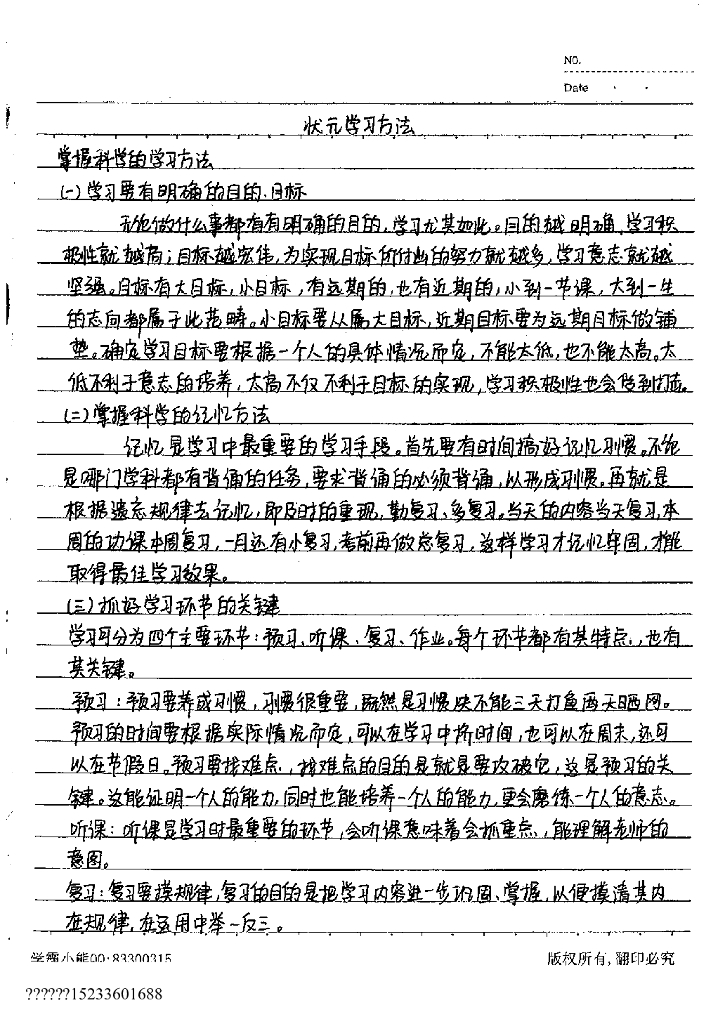 NO.
Date
状元学习方法
掌握科学的学习方法
(一)学习要有明确的目的、目标
无论做什么事都有有明确的目的,学习尤其如此。目的越明确,学习积
极性就越高;目标越宏伟,为实现目标所付出的努力就越多,学习意志就越
坚强。目标有大目标,小目标,有远期的,也有近期的,小到一节课,大到一生
的志向都属于此范畴。小目标要从属大目标,近期目标要为远期目标做铺
垫。确定学习目标要根据一个人的具体情况而定,不能太低,也不能太高。太
低不利于意志的培养,太高不仅不利于目标的实现,学习积极性也会受到打击。
(二)掌握科学的记忆方法
记忆是学习中最重要的学习手段。首先要有时间搞好记忆习惯。不论
是哪门学科都有背诵的任务,要求背诵的必须背诵,以形成习惯。再就是
根据遗忘规律去记忆,即及时的重现,勤复习、多复习。当天的内容当天复习,本
周的功课本周复习,一月还有小复习,考前再做总复习,这样学习才记忆牢固,才能
取得最佳学习效果。
(三)抓好学习环节的关键
学习可分为四个主要环节:预习、听课、复习、作业。每个环节都有其特点,也有
其关键。
预习:预习要养成习惯,习惯很重要,既然是习惯决不能三天打鱼两天晒网。
预习的时间要根据实际情况而定,可以在学习中挤时间,也可以在周末,还可
以在节假日。预习要找难点,找难点的目的是就是要攻破它,这是预习的关
键。这能证明一个人的能力,同时也能培养一个人的能力,更会磨练一个人的意志。
听课:听课是学习时最重要的环节,会听课意味着会抓重点,能理解老师的
意图。
复习:复习要摸规律,复习的目的是把学习内容进一步巩固、掌握,以便摸清其内
在规律,在运用中举一反三。
学霸小熊QQ:83300315
版权所有,翻印必究
??????15233601688